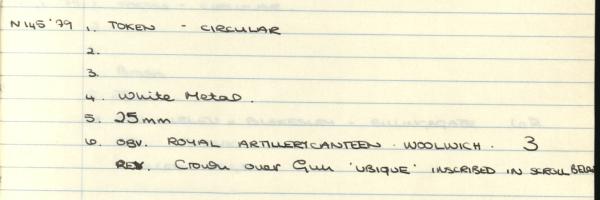 N145'79 1. TOKEN - CIRCULAR
2.
3.
4. White Metal.
5. 25mm
6. OBV. ROYAL ARTILLERY CANTEEN . WOOLWICH . 3
REV. Crown over Gun 'UBIQUE' INSCRIBED IN SCROLL BELOW